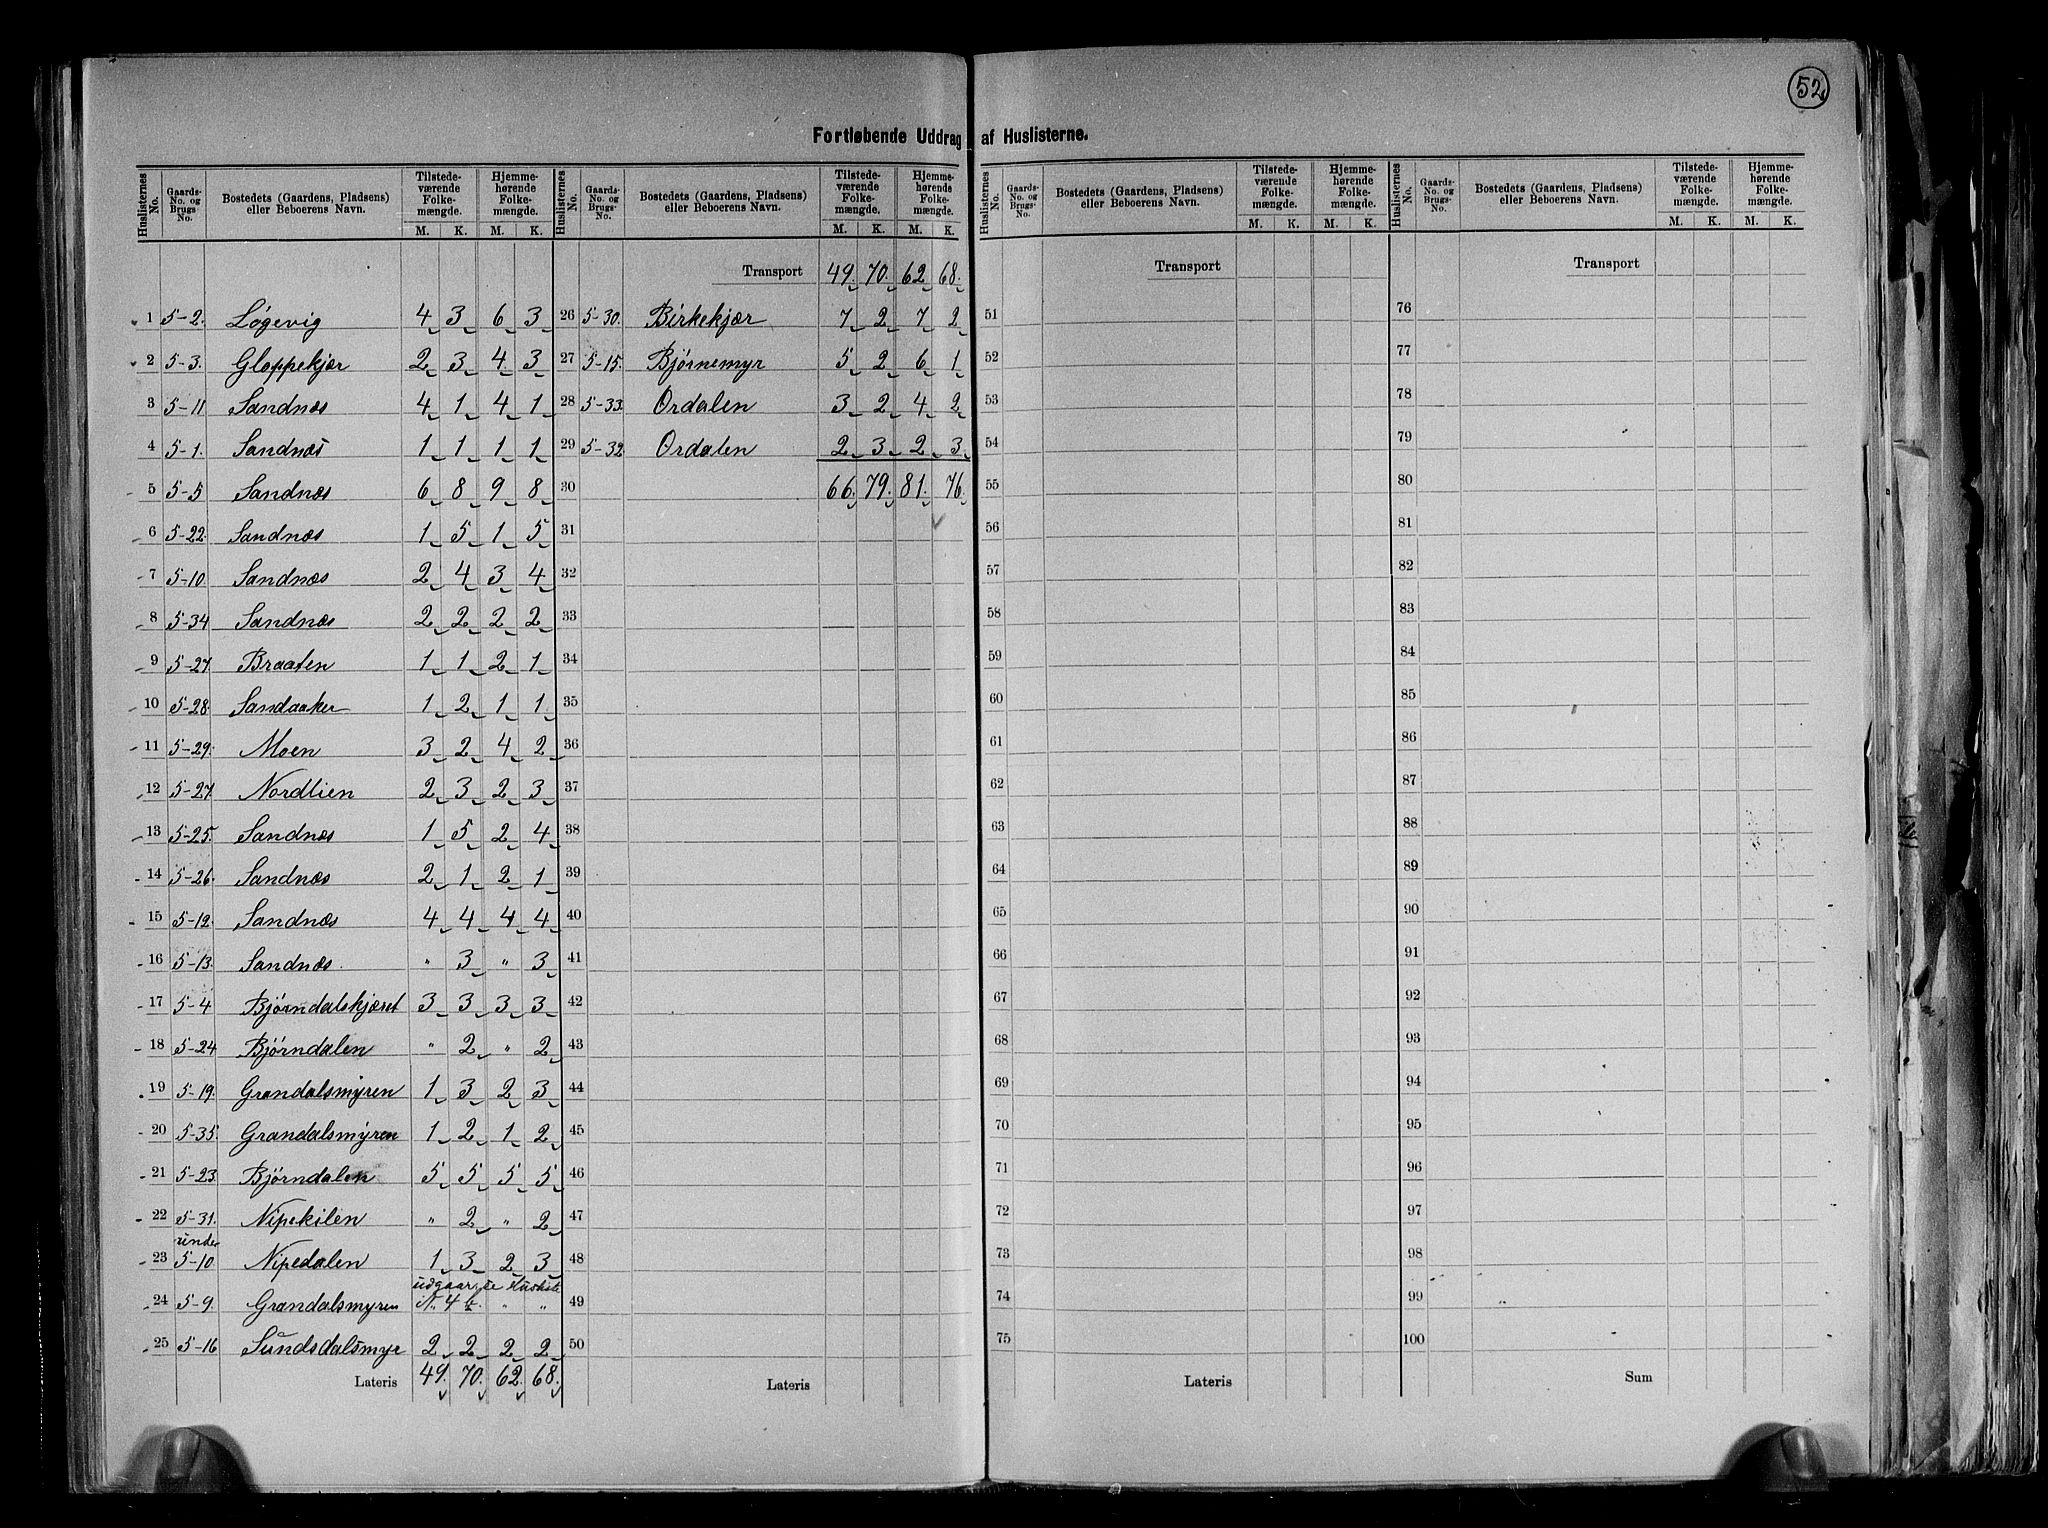 52
Fortløbende Uddrag af Huslisterne.
Huslisternes No. | Gaards-No. og Brugs-No. | Bostedets (Gaardens, Pladsens) eller Beboerens Navn. | Tilstedeværende Folkemængde. M. K. | Hjemmehørende Folkemængde. M. K.
1 5-2. Løgevig 4 3 6 3
2 5-3. Gloppekjær 2 3 4 3
3 5-11 Sandnæs 4 1 4 1
4 5-1. Sandnæs 1 1 1 1
5 5-5 Sandnæs 6 8 9 8
6 5-22. Sandnæs 1 5 1 5
7 5-10. Sandnæs 2 4 3 4
8 5-34 Sandnæs 2 2 2 2
9 5-27. Braaten 1 1 2 1
10 5-28. Sandaaker 1 2 1 1
11 5-29. Moen 3 2 4 2
12 5-27. Nordlien 2 3 2 3
13 5-25. Sandnæs 1 5 2 4
14 5-26. Sandnæs 2 1 2 1
15 5-12. Sandnæs 4 4 4 4
16 5-13. Sandnæs. " 3 " 3
17 5-4 Bjørndalskjæret 3 3 3 3
18 5-24 Bjørndalen " 2 " 2
19 5-19. Grandalsmyren 1 3 2 3
20 5-35. Grandalsmyren 1 2 1 2
21 5-23. Bjørndalen 5 5 5 5
22 5-31. Nipekilen " 2 " 2
under
23 5-10 Nipedalen 1 3 2 3
udgaar, se Husliste
24 5-9. Grandalsmyren N. 4 " "
25 5-16 Sundsdalsmyr 2 2 2 2
Lateris 49. 70. 62. 68.
Huslisternes No. | Gaards-No. og Brugs-No. | Bostedets (Gaardens, Pladsens) eller Beboerens Navn. | Tilstedeværende Folkemængde. M. K. | Hjemmehørende Folkemængde. M. K.
Transport 49. 70. 62 68.
26 5-30. Birkekjær 7 2 7 2
27 5-15. Bjørnemyr 5 2 6 1
28 5-33. Ordalen 3 2 4 2
29 5-32 Ordalen 2 3 2 3
30 66. 79. 81. 76.
31
32
33
34
35
36
37
38
39
40
41
42
43
44
45
46
47
48
49
50
Lateris
Huslisternes No. | Gaards-No. og Brugs-No. | Bostedets (Gaardens, Pladsens) eller Beboerens Navn. | Tilstedeværende Folkemængde. M. K. | Hjemmehørende Folkemængde. M. K.
Transport
51
52
53
54
55
56
57
58
59
60
61
62
63
64
65
66
67
68
69
70
71
72
73
74
75
Lateris
Huslisternes No. | Gaards-No. og Brugs-No. | Bostedets (Gaardens, Pladsens) eller Beboerens Navn. | Tilstedeværende Folkemængde. M. K. | Hjemmehørende Folkemængde. M. K.
Transport
76
77
78
79
80
81
82
83
84
85
86
87
88
89
90
91
92
93
94
95
96
97
98
99
100
Sum